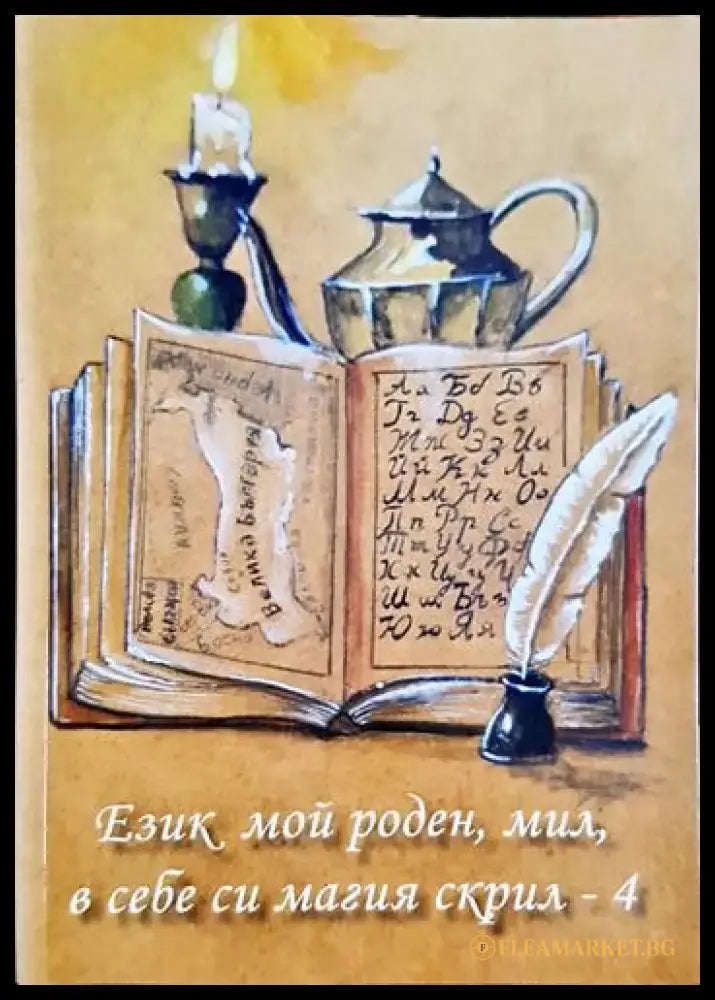 Велика България
Аа Бб Вв
Гг Дд Ее
Жж Зз Ии
Йй Кк Лл
Мм Нн Оо
Пп Рр Сс
Тт Уу Фф
Хх Цц Ч
Шш Ъъ
Юю Яя
Език мой роден, мил,
в себе си магия скрил - 4
FLEAMARKET.BG